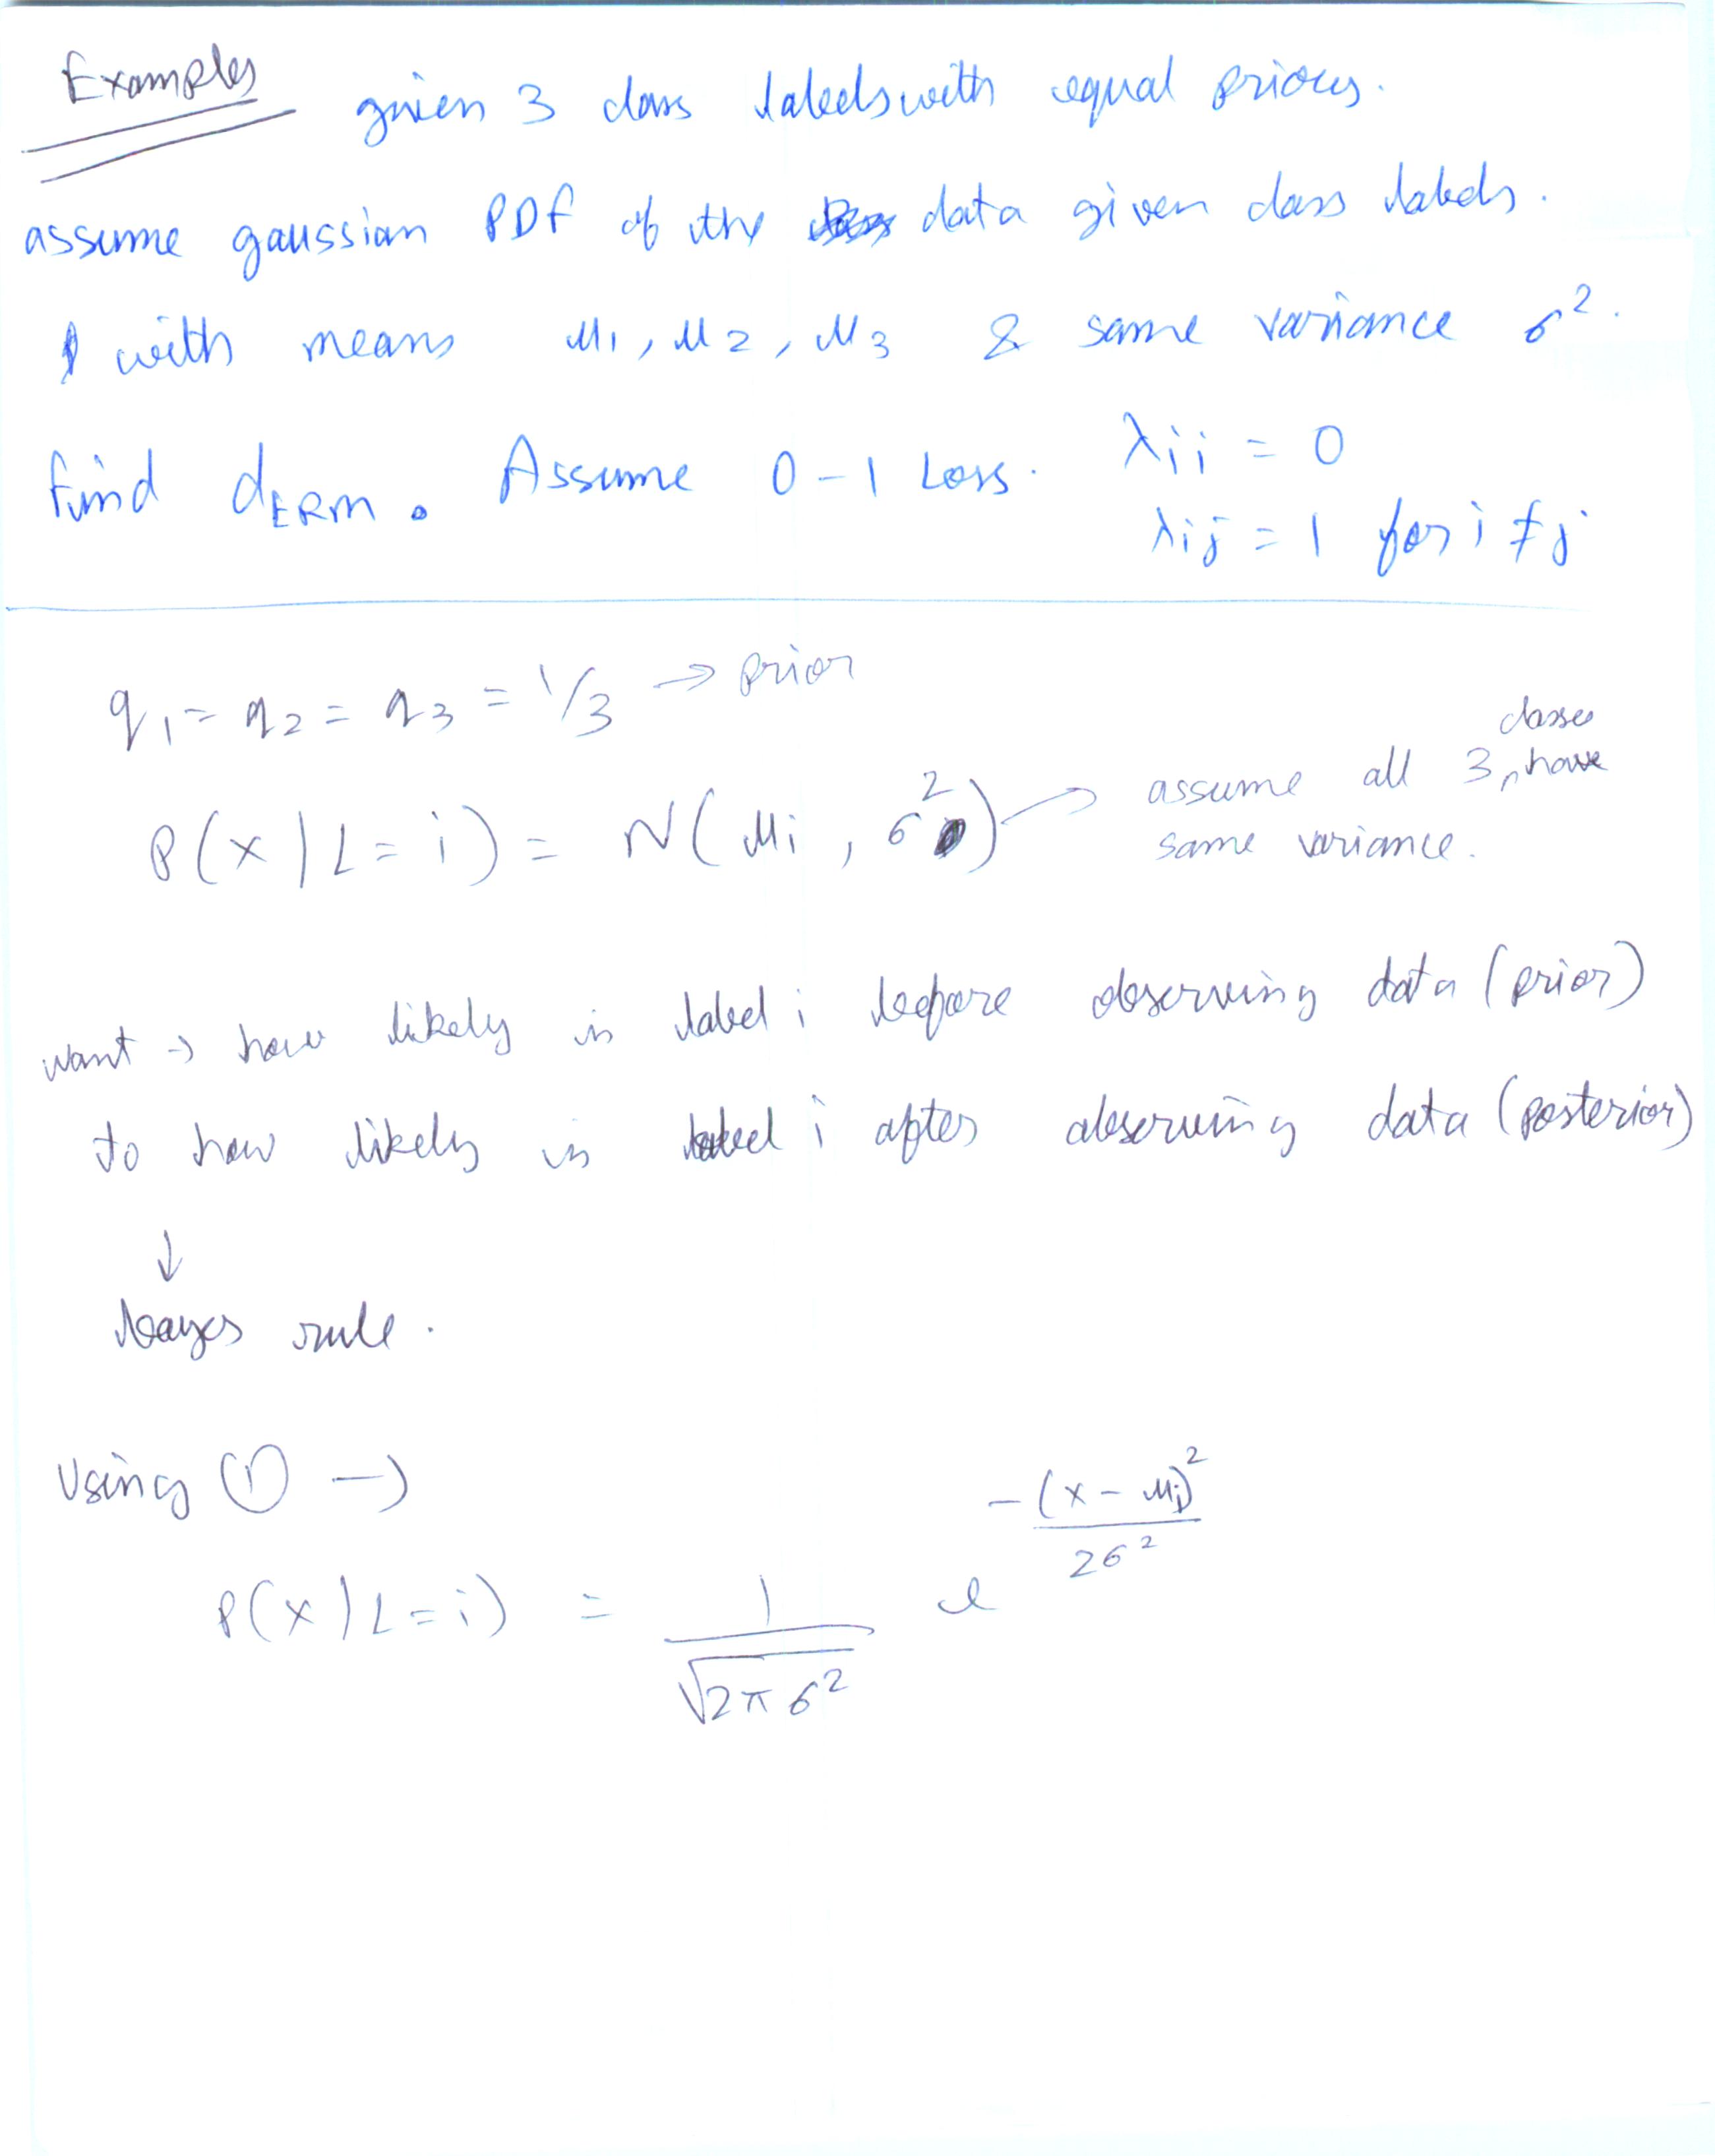 Examples
given 3 class labels with equal priors.
assume gaussian PDF of the data given class labels.
with means μ1, μ2, μ3 & same variance σ².
find d_ERM. Assume 0-1 Loss. λii = 0
λij = 1 for i ≠ j
q1 = q2 = q3 = 1/3 → prior
P(x | L = i) = N(μi, σ²) → assume all 3 classes have
same variance.
want → how likely is label i before observing data (prior)
to how likely is label i after observing data (posterior)
↓
bayes rule.
Using ① →
P(x | L = i) = 1/√(2πσ²) e^(-(x - μi)²/2σ²)